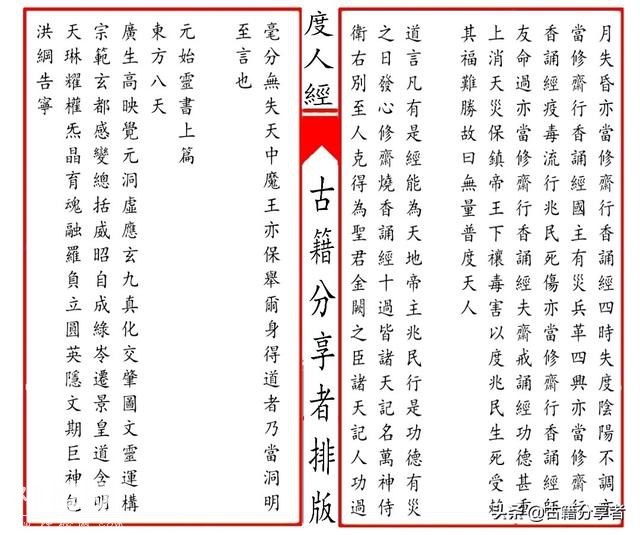 月失昏亦當修齋行香誦經四時失度陰陽不調亦
當修齋行香誦經國主有災兵革四興亦當修齋行
香誦經疫毒流行兆民死傷亦當修齋行香誦經師
友命過亦當修齋行香誦經夫齋戒誦經功德甚重
上消天災保鎮帝王下禳毒害以度兆民生死受賴
其福難勝故曰無量普度天人
道言凡有是經能為天地帝主兆民行是功德有災
之日發心修齋燒香誦經十過皆諸天記名萬神侍
衛右別至人克得為聖君金闕之臣諸天記人功過
度人經
古籍分享者排版
毫分無失天中魔王亦保舉爾身得道者乃當洞明
至言也
元始靈書上篇
東方八天
廣生高映覺元洞虛應玄九真化交肇圖文靈運構
宗範玄都感變總括威昭自成綠岑遷景皇道含明
天琳耀權炁晶育魂融羅負立圓英隱文期巨神包
洪綱告寧
头条@古籍分享者